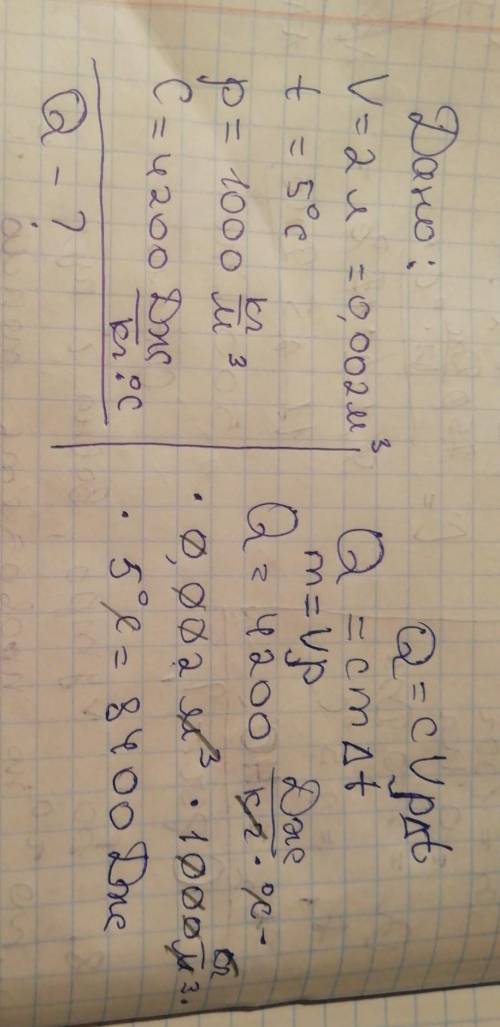 Дано:
V = 2 л = 0,002 м³
t = 5°C
p = 1000 кг/м³
C = 4200 Дж/кг·°C
Q - ?
Q = cVpΔt
Q = cmΔt
m = Vp
Q = 4200 Дж/кг·°C ·
· 0,002 м³ · 1000 кг/м³ ·
· 5°C = 8400 Дж